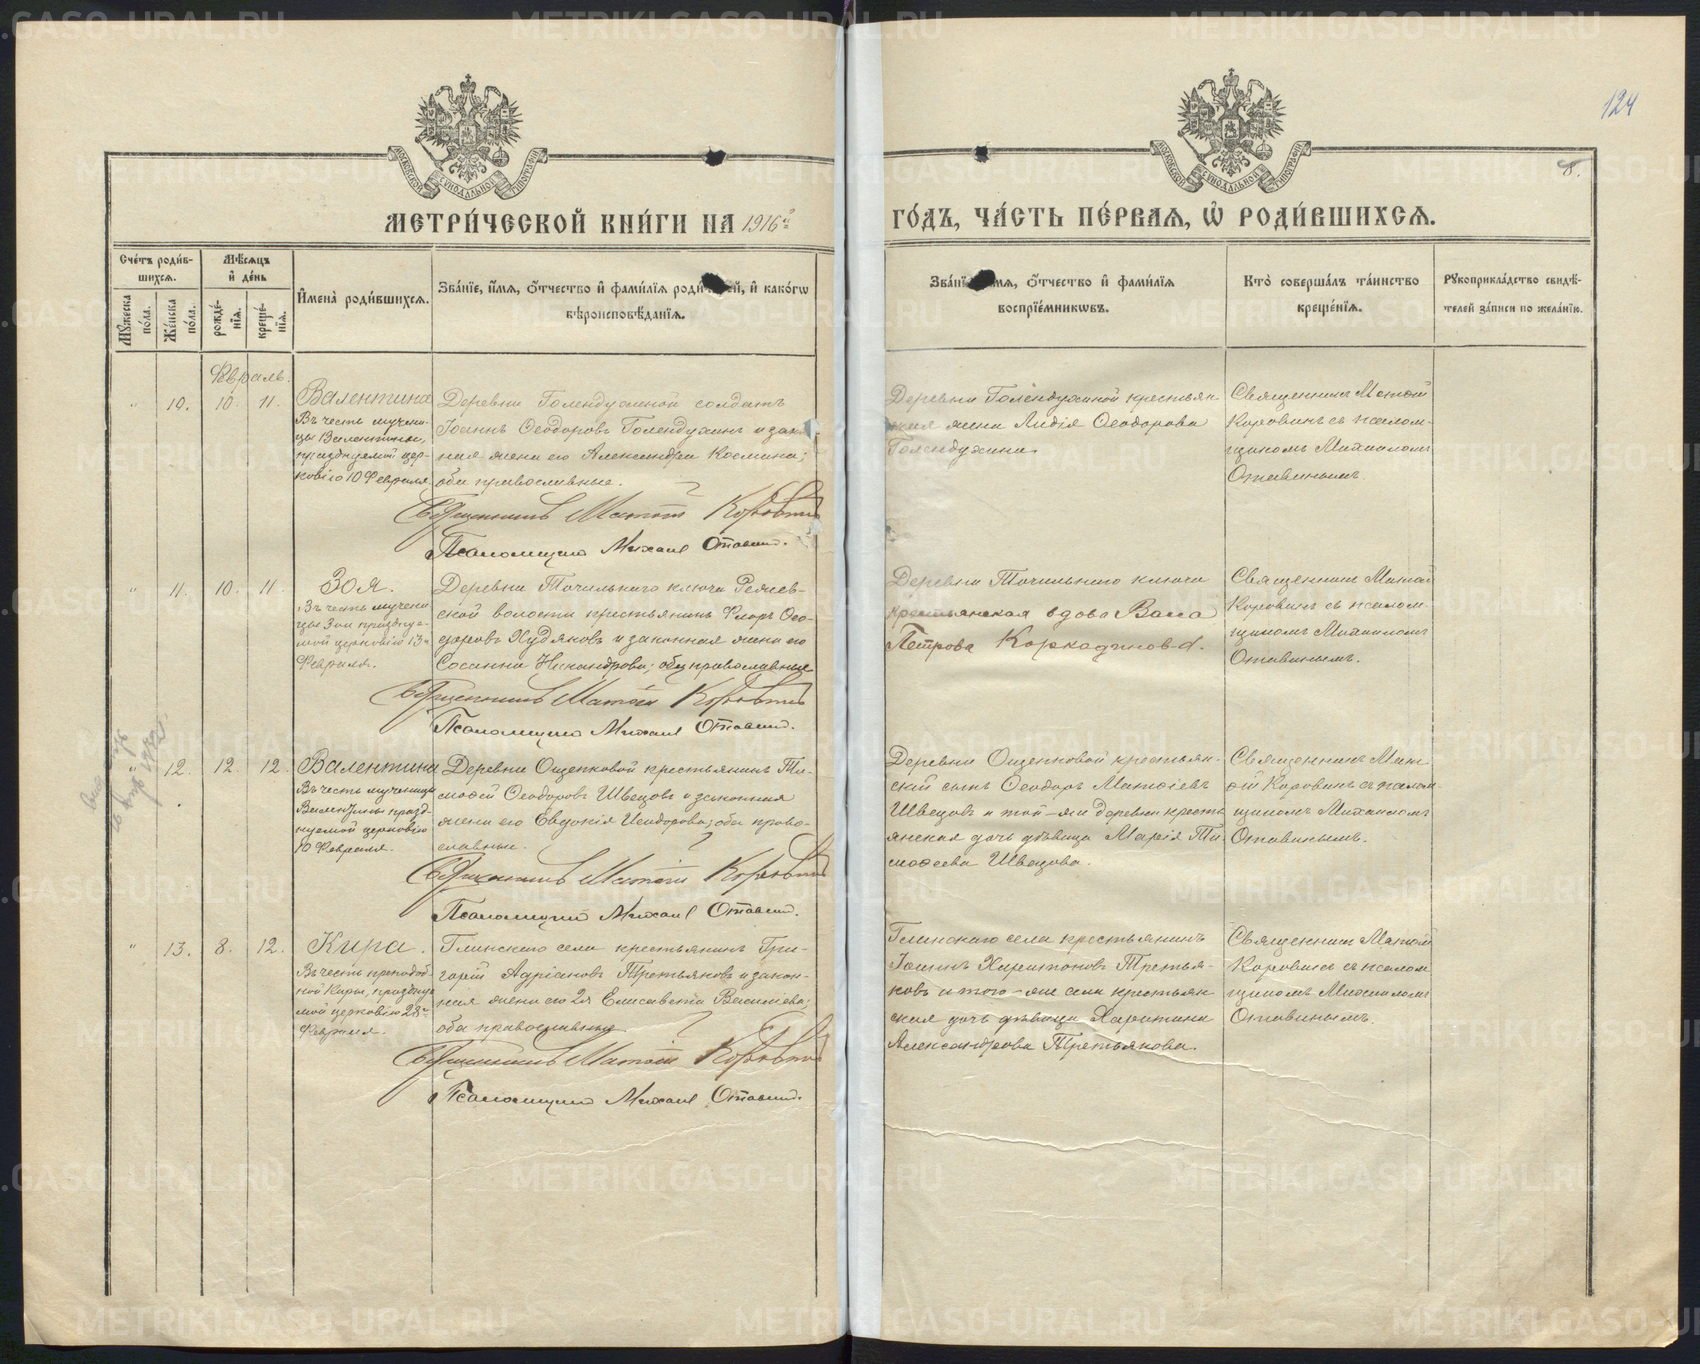 124
8.
МОСКОВСКОЙ СѴНОДАЛЬНОЙ ТИПОГРАФІИ
МОСКОВСКОЙ СѴНОДАЛЬНОЙ ТИПОГРАФІИ
МЕТРИ́ЧЕСКОЙ КНИ́ГИ НА 1916й
ГО́ДЪ, ЧА́СТЬ ПЕ́РВАѦ, Ѡ҆ РОДИ́ВШИХСѦ.
Сче́тъ роди́в-
шихсѧ.
Мꙋ́жеска по́ла.
Же́нска по́ла.
Мѣ́сѧцъ
и҆ де́нь
рожде́-
нїѧ.
креще́-
нїѧ.
И҆мена̀ роди́вшихсѧ.
Зва́нїе, и҆́мѧ, ѻ҆́тчество и҆ фами́лїѧ роди́телей, и҆ како́гѡ
вѣроисповѣ́данїѧ.
Зва́нїе, и҆́мѧ, ѻ҆́тчество и҆ фами́лїѧ
воспрїе́мникѡвъ.
Кто̀ соверша́лъ та́инство
креще́нїѧ.
Рꙋкоприкла́дство свидѣ́-
телей за́писи по жела́нїю.
Февраль.
" 10. 10. 11.
Валентина
Въ честь мучени-
цы Валентины,
празднуемой цер-
ковію 10 Февраля
Деревни Голендухиной солдатъ
Іоаннъ Ѳеодоровъ Голендухинъ и закон-
ная жена его Александра Космина;
оба православные.
Священникъ Матѳій Коровинъ
Псаломщикъ Михаилъ Отавин.
Деревни Голендухиной крестьян-
ская жена Лидія Ѳеодорова
Голендухина.
Священникъ Матѳій
Коровинъ съ псалом-
щикомъ Михаиломъ
Отавинымъ.
" 11. 10. 11.
Зоя.
Въ честь мучени-
цы Зои праздну-
мой церковію 13го
Февраля.
Деревни Точильнаго ключа
ской волости крестьянинъ Флоръ Ѳео-
доровъ Худяковъ и законная жена его
Сосанна Никандрова; оба православные
Священникъ Матѳій Коровинъ
Псаломщикъ Михаилъ Отавин.
Деревни Точильнаго ключа
крестьянская вдова Васса
Петрова Коркодинова.
Священникъ Матѳій
Коровинъ съ псалом-
щикомъ Михаиломъ
Отавинымъ.
" 12. 12. 12.
Валентина
Въ честь мученицы
Валентины празд-
нуемой церковію
10 Февраля.
Деревни Ощепковой крестьянинъ Ти-
моѳей Ѳеодоровъ Швецовъ и законная
жена его Евдокія Исидорова; оба право-
славные.
Священникъ Матѳій Коровинъ
Псаломщикъ Михаилъ Отавин.
Деревни Ощепковой крестьян-
скій сынъ Ѳеодоръ Матѳіевъ
Швецовъ и той-же деревни кресть-
янская дочь дѣвица Марія Ти-
моѳеева Швецова.
Священникъ Матѳ-
ѳій Коровинъ съ псалом-
щикомъ Михаиломъ
Отавинымъ.
" 13. 8. 12.
Кира.
Въ честь преподоб-
ной Киры, праздну-
мой церковію 28го
Февраля.
Глинскаго села крестьянинъ Гри-
горій Адріановъ Третьяковъ и закон-
ная жена его 2я Елисавета Васильева;
оба православные
Священникъ Матѳій Коровинъ
Псаломщикъ Михаилъ Отавин.
Глинскаго села крестьянинъ
Іоаннъ Харитоновъ Третья-
ковъ и того-же села крестьян-
ская дочь дѣвица Харитина
Александрова Третьякова.
Священникъ Матѳій
Коровинъ съ псалом-
щикомъ Михаиломъ
Отавинымъ.
METRIKI.GASO-URAL.RU